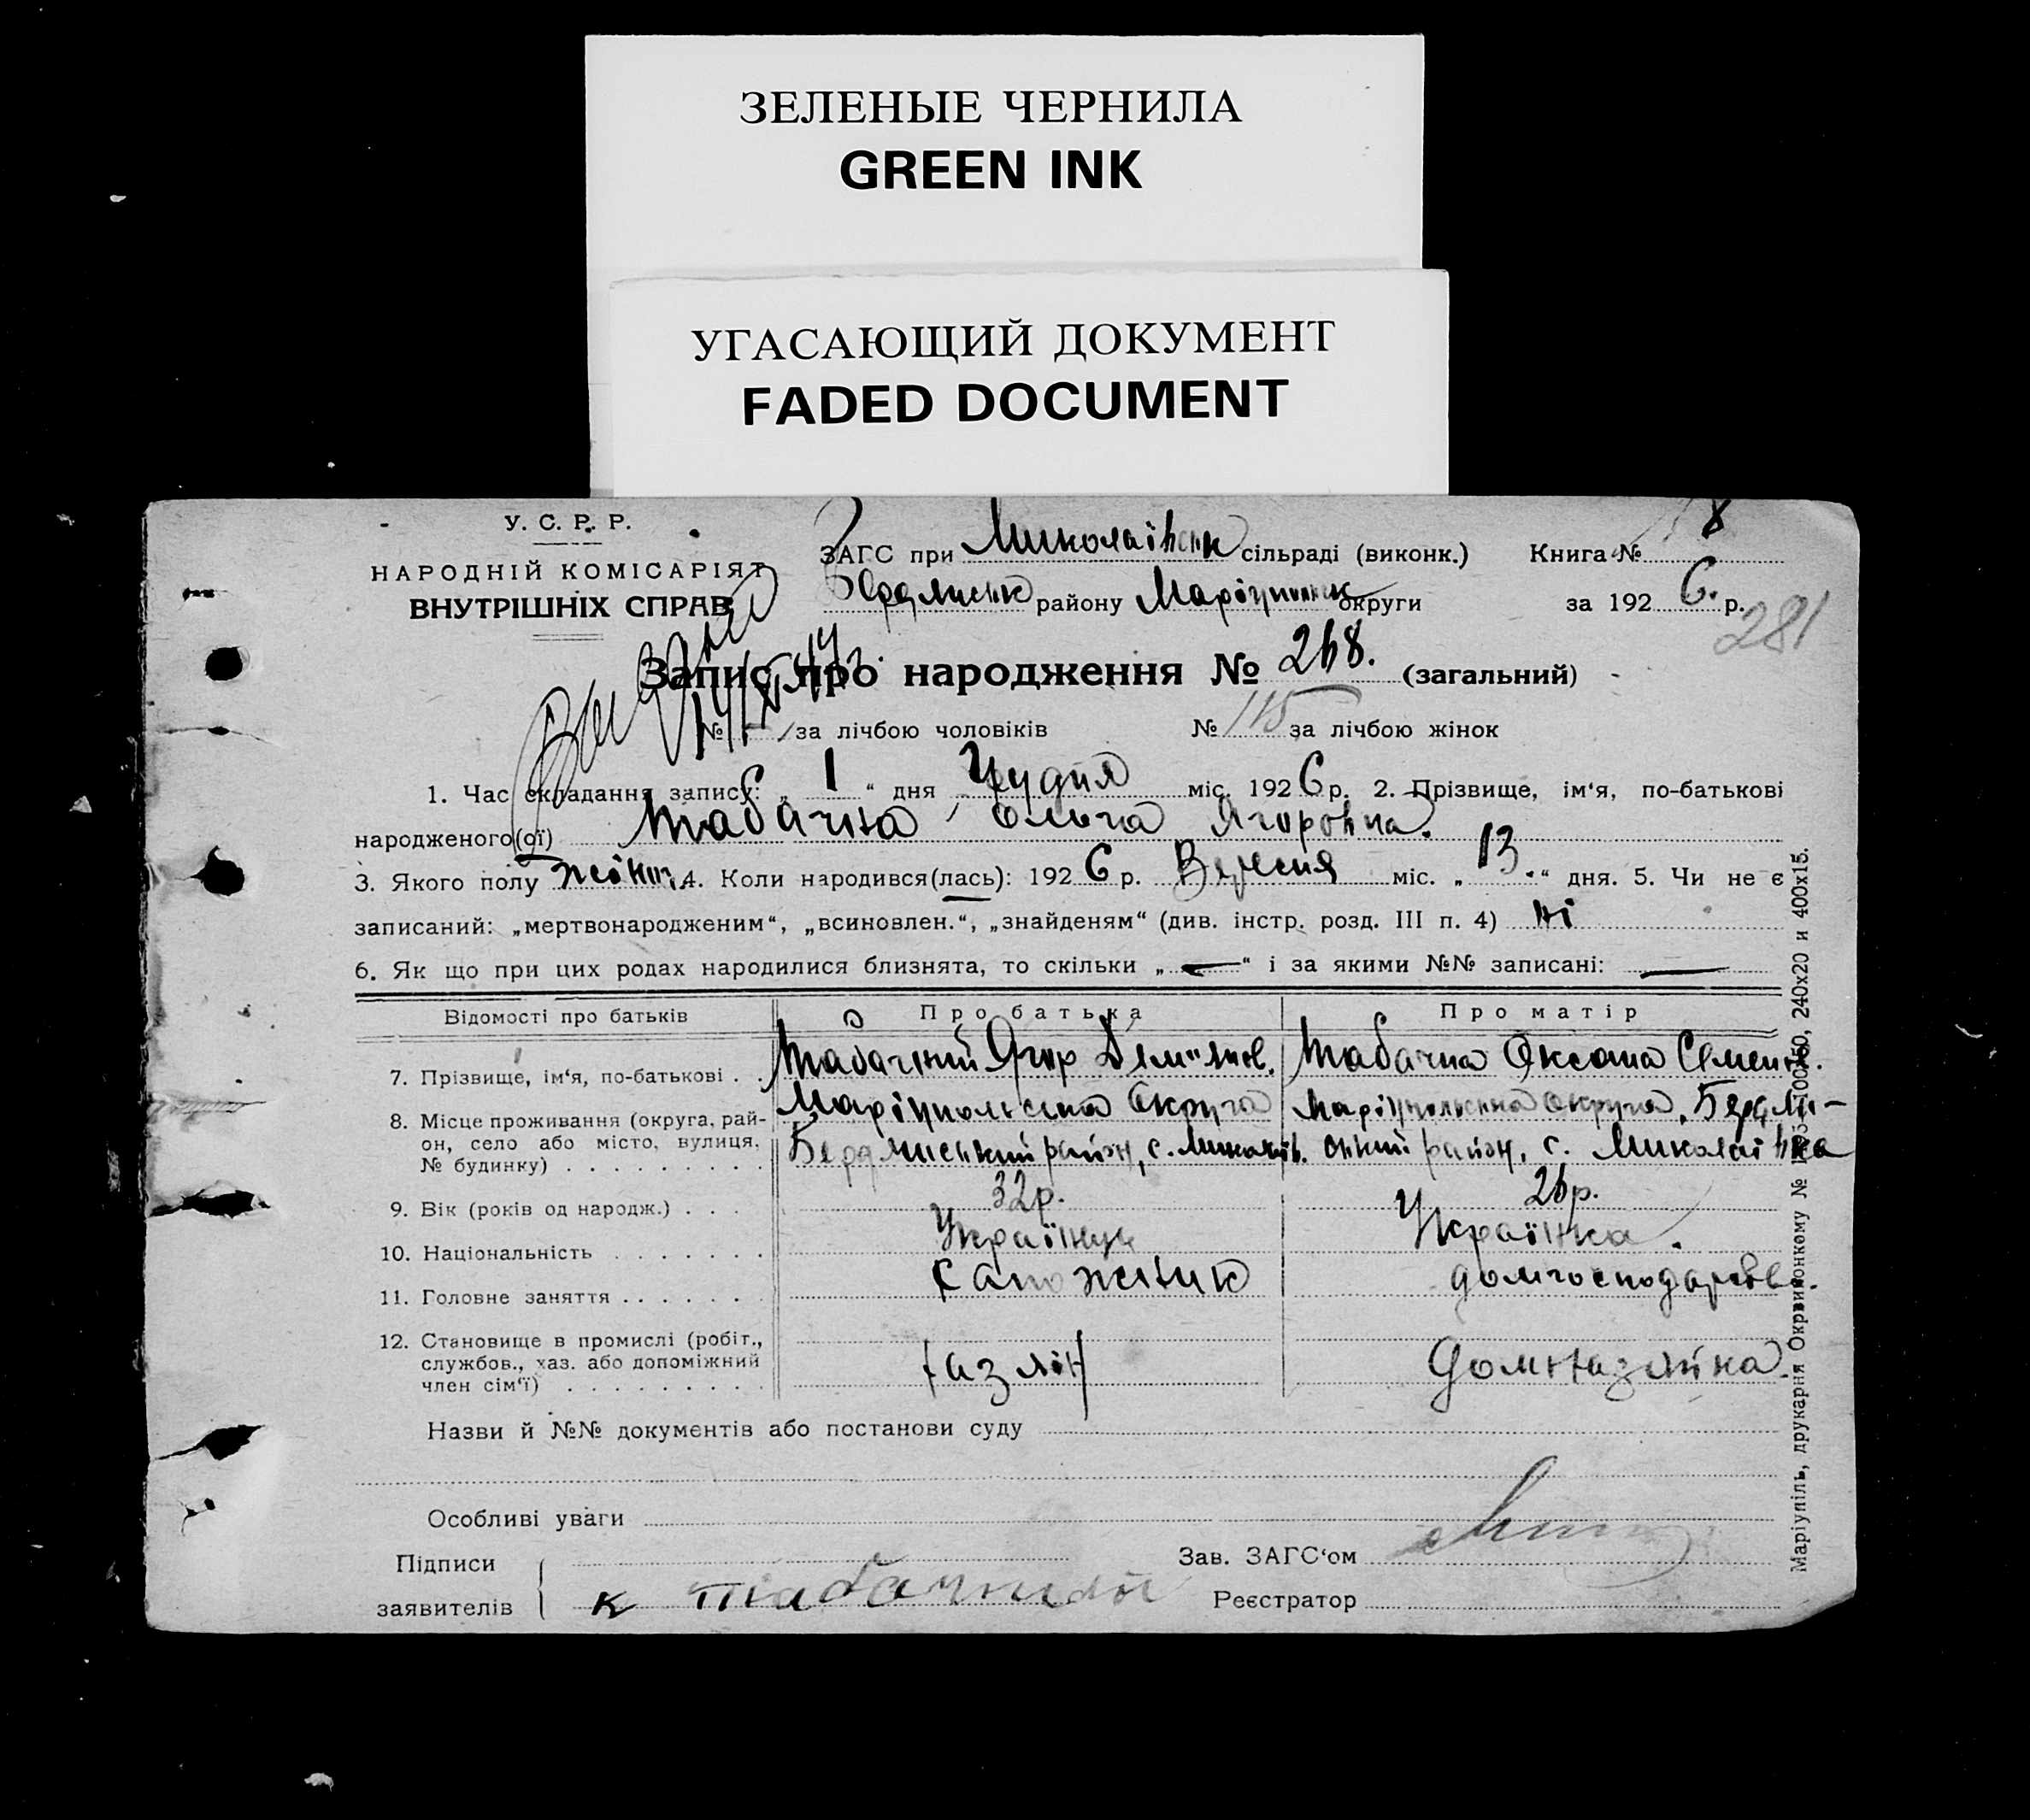 ЗЕЛЕНЫЕ ЧЕРНИЛА
GREEN INK
УГАСАЮЩИЙ ДОКУМЕНТ
FADED DOCUMENT
У. С. Р. Р.
НАРОДНІЙ КОМІСАРІЯТ
ВНУТРІШНІХ СПРАВ
ЗАГС при Миколаївськ сільраді (виконк.) Книга № 8
Бердянськ району Маріупольськ округи за 1926. р.
281
Запис про народження № 268. (загальний)
№ за лічбою чоловіків № 115 за лічбою жінок
1. Час складання запису: „ 1 “ дня Грудня міс. 1926 р. 2. Прізвище, ім‘я, по-батькові
народженого(ої) Табачна Ольга Ягоровна.
3. Якого полу жіноч. 4. Коли народився(лась): 1926 р. Вересня міс. „ 13. “ дня. 5. Чи не є
записаний: „мертвонародженим“, „всиновлен.“, „знайденям“ (див. інстр. розд. III п. 4) ні
6. Як що при цих родах народилися близнята, то скільки „ — “ і за якими №№ записані: —
Відомості про батьків Про батька Про матір
7. Прізвище, ім‘я, по-батькові . . Табачний Ягор Дем'янов. Табачна Оксана Семенв.
8. Місце проживання (округа, рай- Маріупольська Округа Маріупольська округа, Бердян-
он, село або місто, вулиця, Бердянський район, с. Миколаїв. ський район, с. Миколаївка
№ будинку) . . . . . . . . .
9. Вік (років од народж.) . . . 32р. 26р.
10. Національність . . . . . . . Українець Українка.
11. Головне заняття . . . . . . . Сапожник домгосподарство.
12. Становище в промислі (робіт.,
службов., хаз. або допоміжний хазяїн домхазяйка.
член сім‘ї) . . . . . . . . .
Назви й №№ документів або постанови суду
Особливі уваги
Підписи
заявителів к Табачний
Зав. ЗАГС‘ом
Реєстратор